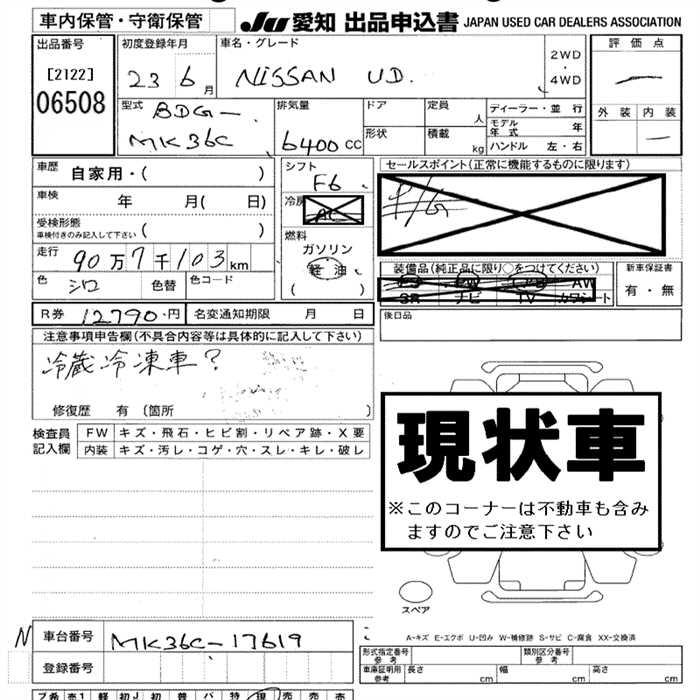 車内保管・守衛保管
JU 愛知 出品申込書 JAPAN USED CAR DEALERS ASSOCIATION
出品番号
[2122]
06508
初度登録年月
23 6 月
車名・グレード
NISSAN UD.
2WD
・
4WD
評価点
外装 内装
型式
BDG-
MK36C
排気量
6400 CC
ドア
形状
定員 人
積載 kg
ディーラー・並 行
モデル年式 年
ハンドル 左・右
車歴 自家用・( )
車検 年 月( 日)
受検形態
車検付きのみ記入して下さい ( )
走行 90万7千103 km
色 シロ 色替 色コード
シフト
F6
冷房
AC
燃料
ガソリン
軽油
( )
セールスポイント(正常に機能するものに限ります)
P/G
装備品(純正品に限り○をつけてください)
PS PW AW
SR ナビ TV カワシート
新車保証書
有・無
後日品
R券 12790 円 名変通知期限 月 日
注意事項申告欄(不具合内容等は具体的に記入して下さい)
冷蔵冷凍車?
修復歴 有(箇所 )
検査員
記入欄
FW キズ・飛石・ヒビ割・リペア跡・X要
内装 キズ・汚レ・コゲ・穴・スレ・キレ・破レ
現状車
※このコーナーは不動車も含み
ますのでご注意下さい
スペア
A-キズ E-エクボ U-凹み W-補修跡 S-サビ C-腐食 XX-交換済
N 車台番号 MK36C-17619
登録番号
形式指定番号
参考
類別区分番号
参考
車庫証明用
参考
長さ cm 幅 cm 高さ cm